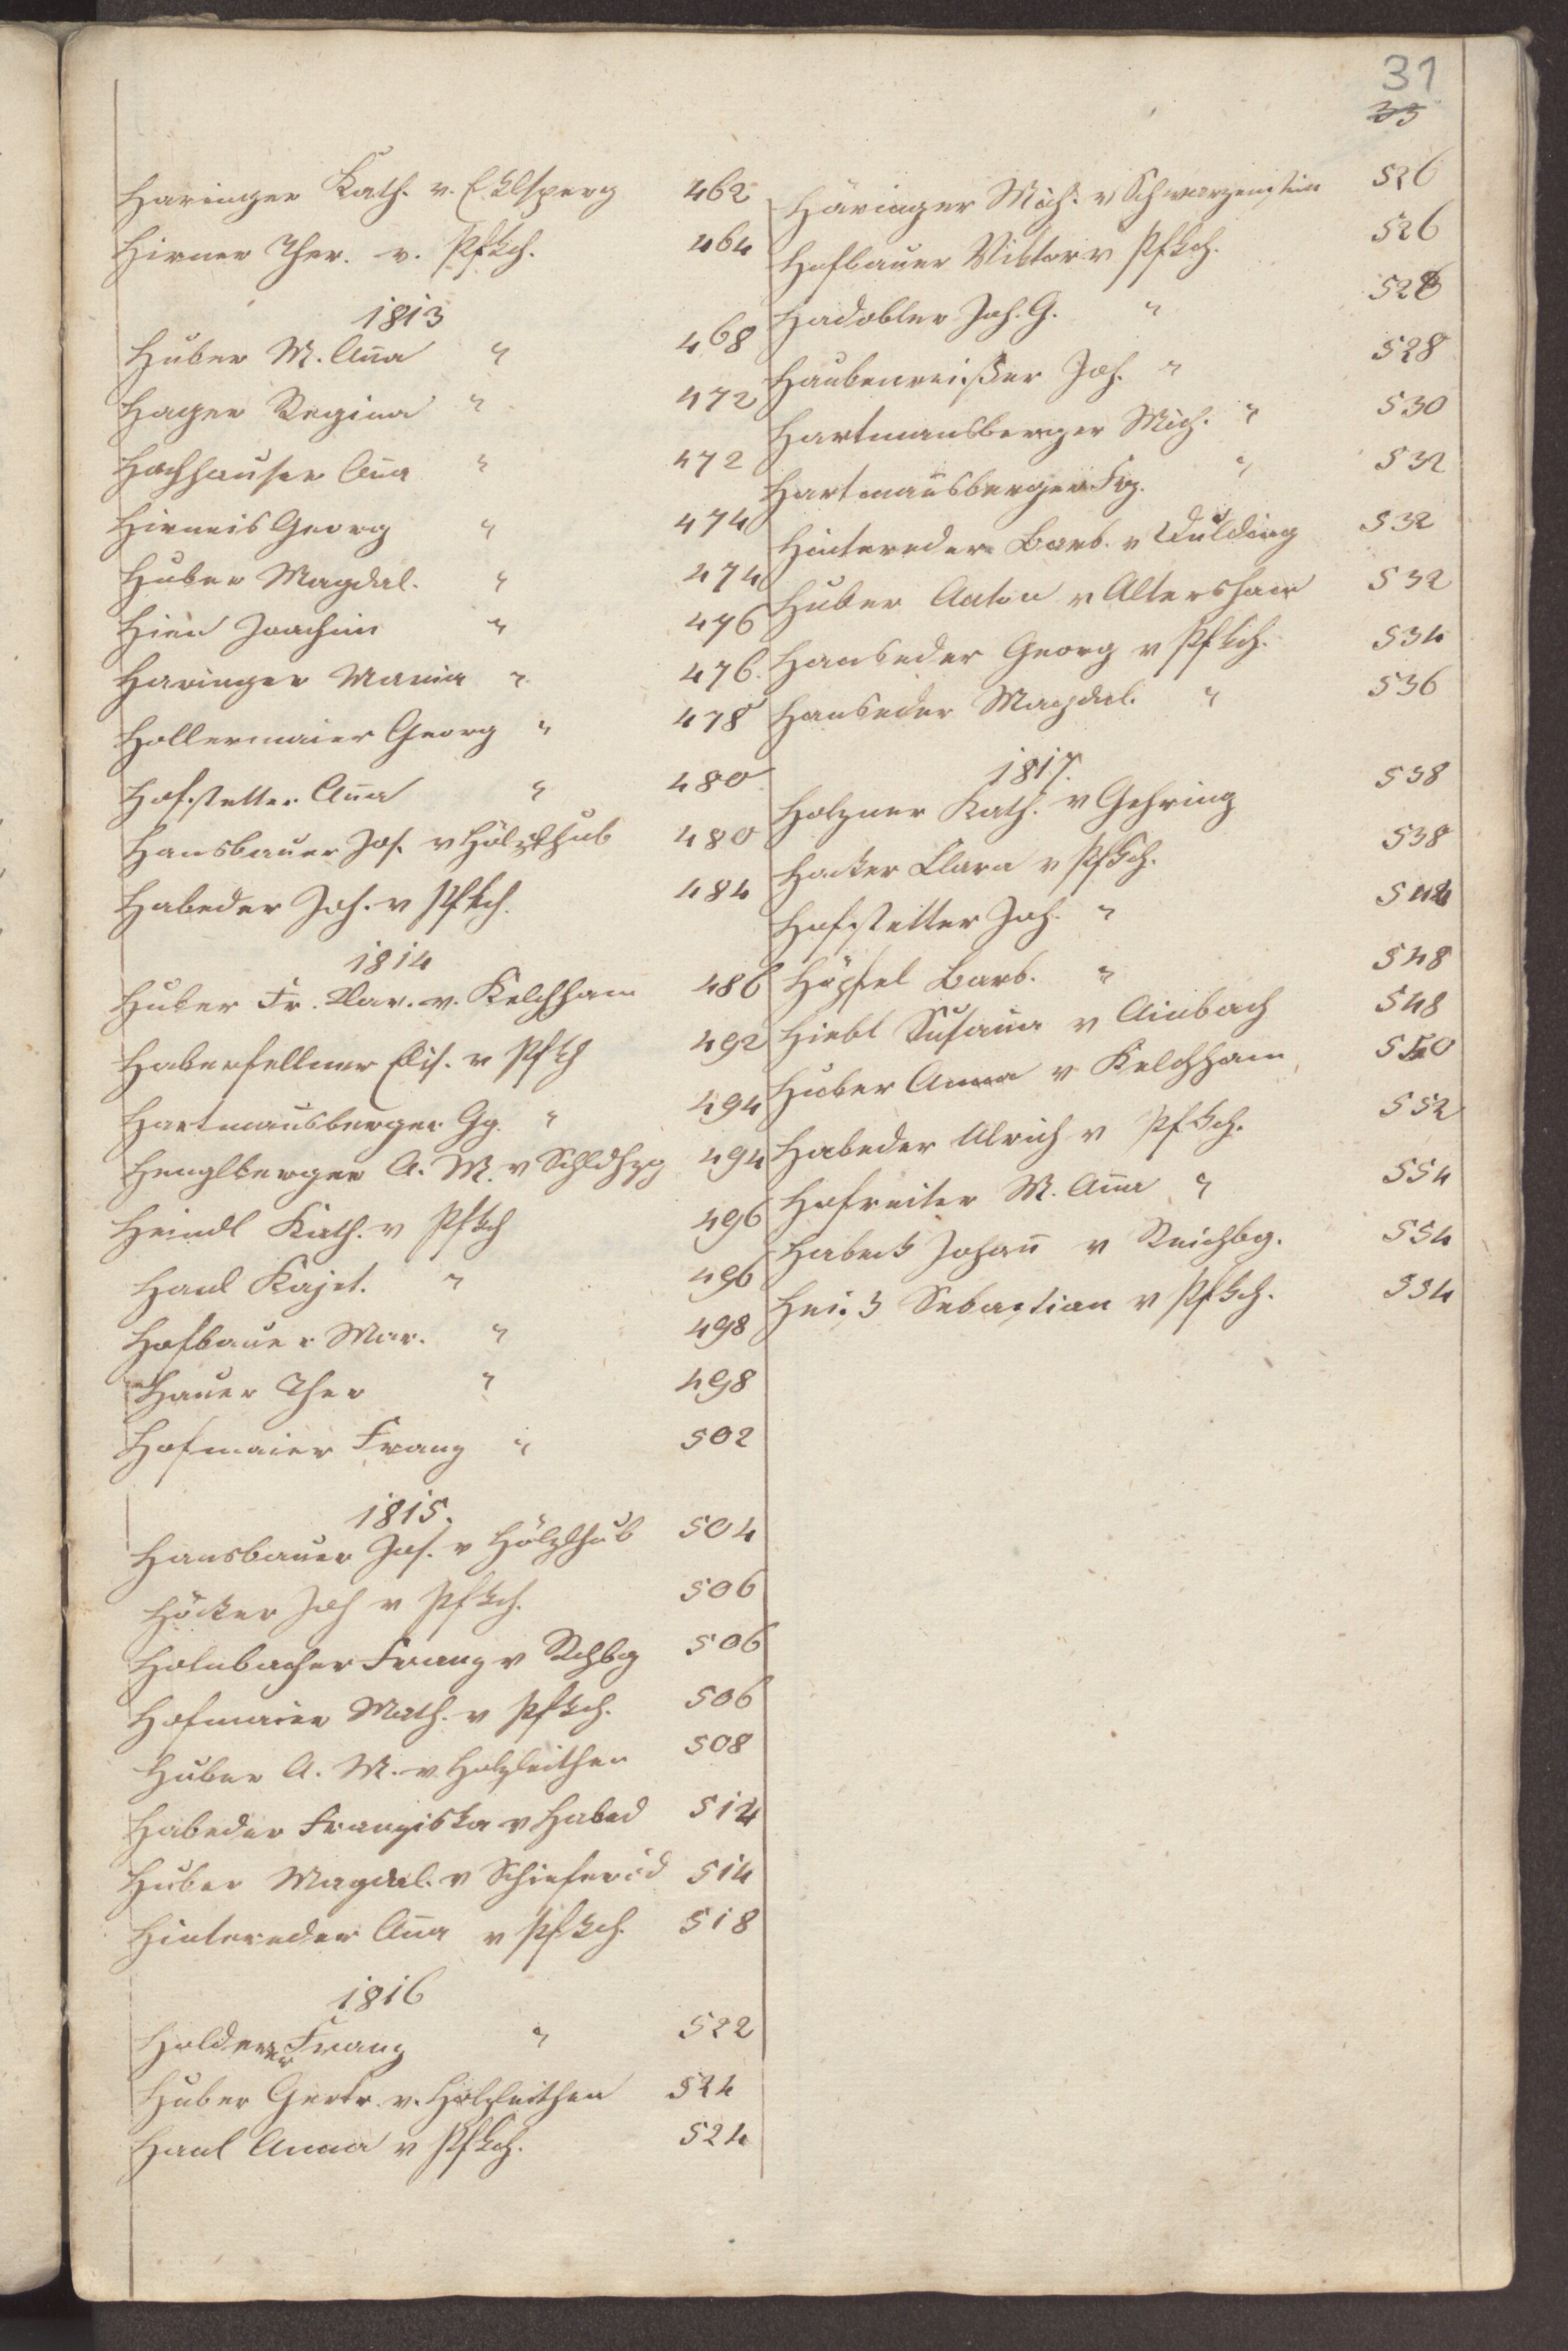 31
33
Haringer Kath. v. Eklsperg 462
Hirner Ther. v. Pfkch. 464
1813
Huber M. Aña " 468
Hager Regina " 472
Hochhauser Aña " 472
Hirneis Georg " 474
Huber Magdal. " 474
Hien Joachim " 476
Haringer Maria " 476.
Hollermaier Georg " 478
Hofstetter Aña " 480
Hansbauer Jos. v Hölzlhub 480
Habeder Joh. v Pfkch. 484
1814
Huber Fr. Xav. v. Kelchham 486
Haberfellner Elis. v Pfkch 492
Hartmansberger Gg. " 494
Henglberger A. M. v Schldhzg 494
Heindl Kath. v Pfkch 496
Hanl Kajet. " 496
Hofbauer Mar. " 498
Hauer Ther " 498
Hofmaier Franz " 502
1815.
Hansbauer Jos. v Hölzlhub 504
Höcker Joh v Pfkch. 506
Holnbacher Franz v Rchbg 506
Hofmaier Math. v Pfkch. 506
Huber A. M. v Holzleithen 508
Habeder Franziska v Habed 514
Huber Magdal. v Schieferöd 514
Hintereder Aña v Pfkch. 518
1816
Holderer Franz " 522
Huber Gertr. v. Holzleithen 524
Hanl Anna v Pfkch. 524
Häringer Mich. v Schwarzenstein 526
Hofbauer Viktor v Pfkch. 526
Hadobler Joh. G. " 528
Haubenreißer Joh. " 528
Hartmansberger Mich. " 530
Hartmansberger Frz. " 532
Hintereder Barb. v Dulding 532
Huber Anton v Altersham 532
Hanseder Georg v Pfkch. 534
Hanseder Magdal. " 536
1817.
Holzner Kath. v Gehring 538
Hacker Clara v Pfkch. 538
Hofstetter Joh. " 544
Höpfel Barb. " 548
Hiebl Susaña v Ainbach 548
Huber Anna v Kelchham 550
Habeder Ulrich v Pfkch. 552
Hofreiter M. Aña " 554
Habeck Johañ v Reichbg. 554
Heiß Sebastian v Pfkch. 554